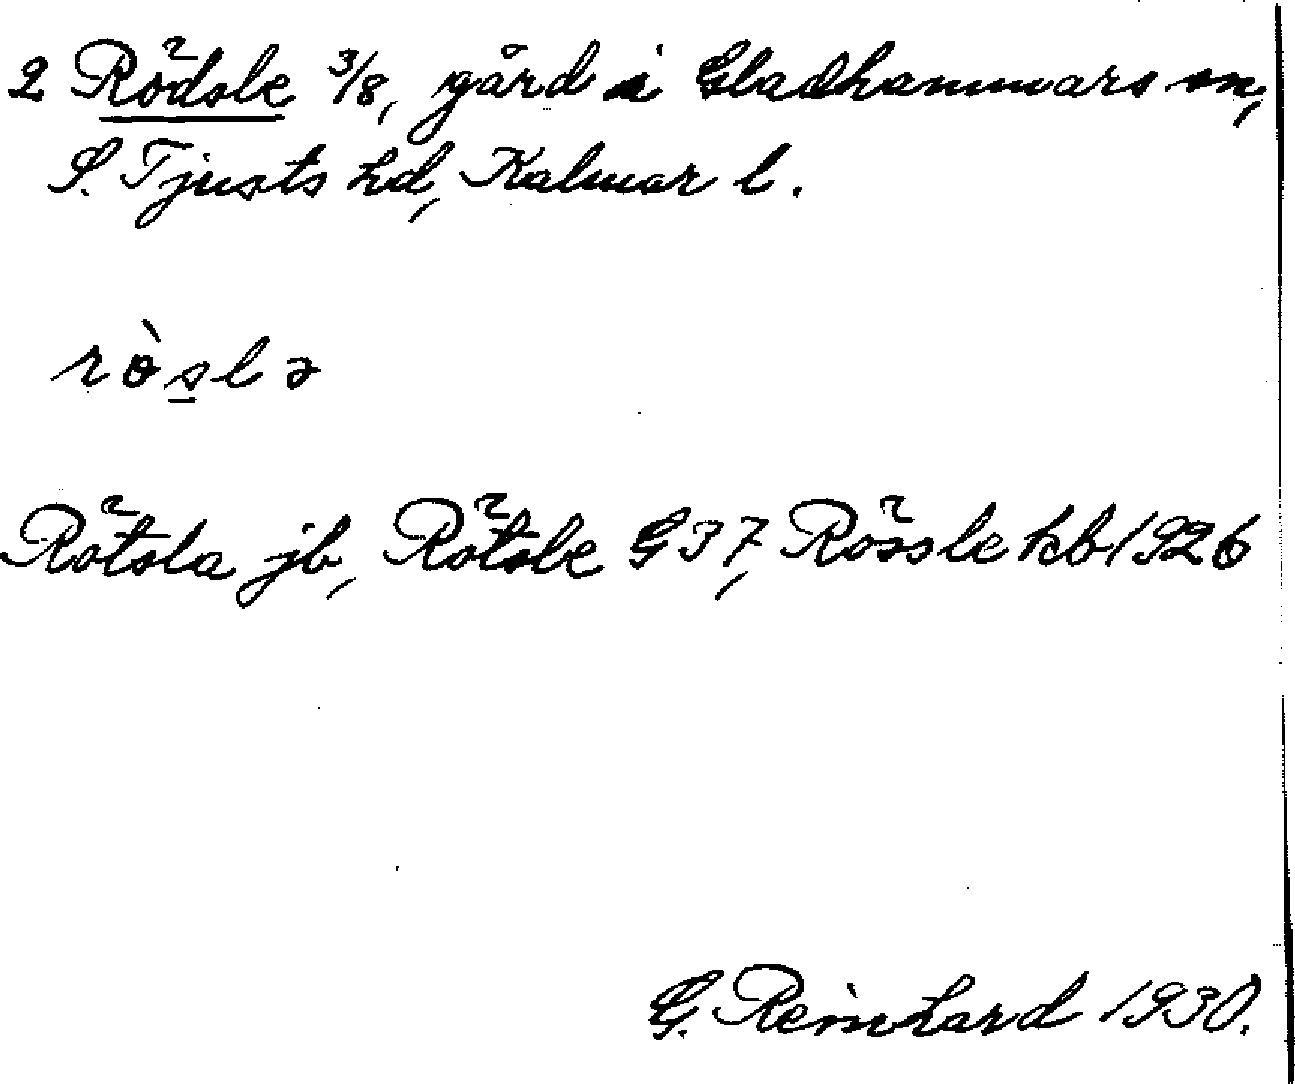 2 Rödsle 3/8, gård i Gladhammars sn,
S. Tjusts hd, Kalmar l.
rö̀s̠lə
Rötsla jb, Rötsle G37, Rössle kb 1926
G. Reinhard 1930.